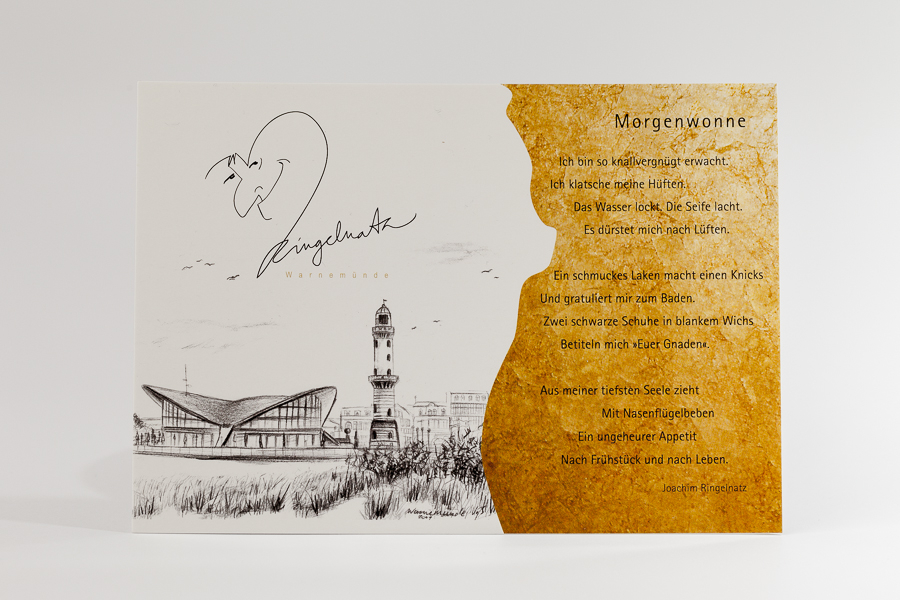 Ringelnatz
Warnemünde
Warnemünde
Morgenwonne
Ich bin so knallvergnügt erwacht.
Ich klatsche meine Hüften.
Das Wasser lockt. Die Seife lacht.
Es dürstet mich nach Lüften.
Ein schmuckes Laken macht einen Knicks
Und gratuliert mir zum Baden.
Zwei schwarze Schuhe in blankem Wichs
Betiteln mich »Euer Gnaden«.
Aus meiner tiefsten Seele zieht
Mit Nasenflügelbeben
Ein ungeheurer Appetit
Nach Frühstück und nach Leben.
Joachim Ringelnatz